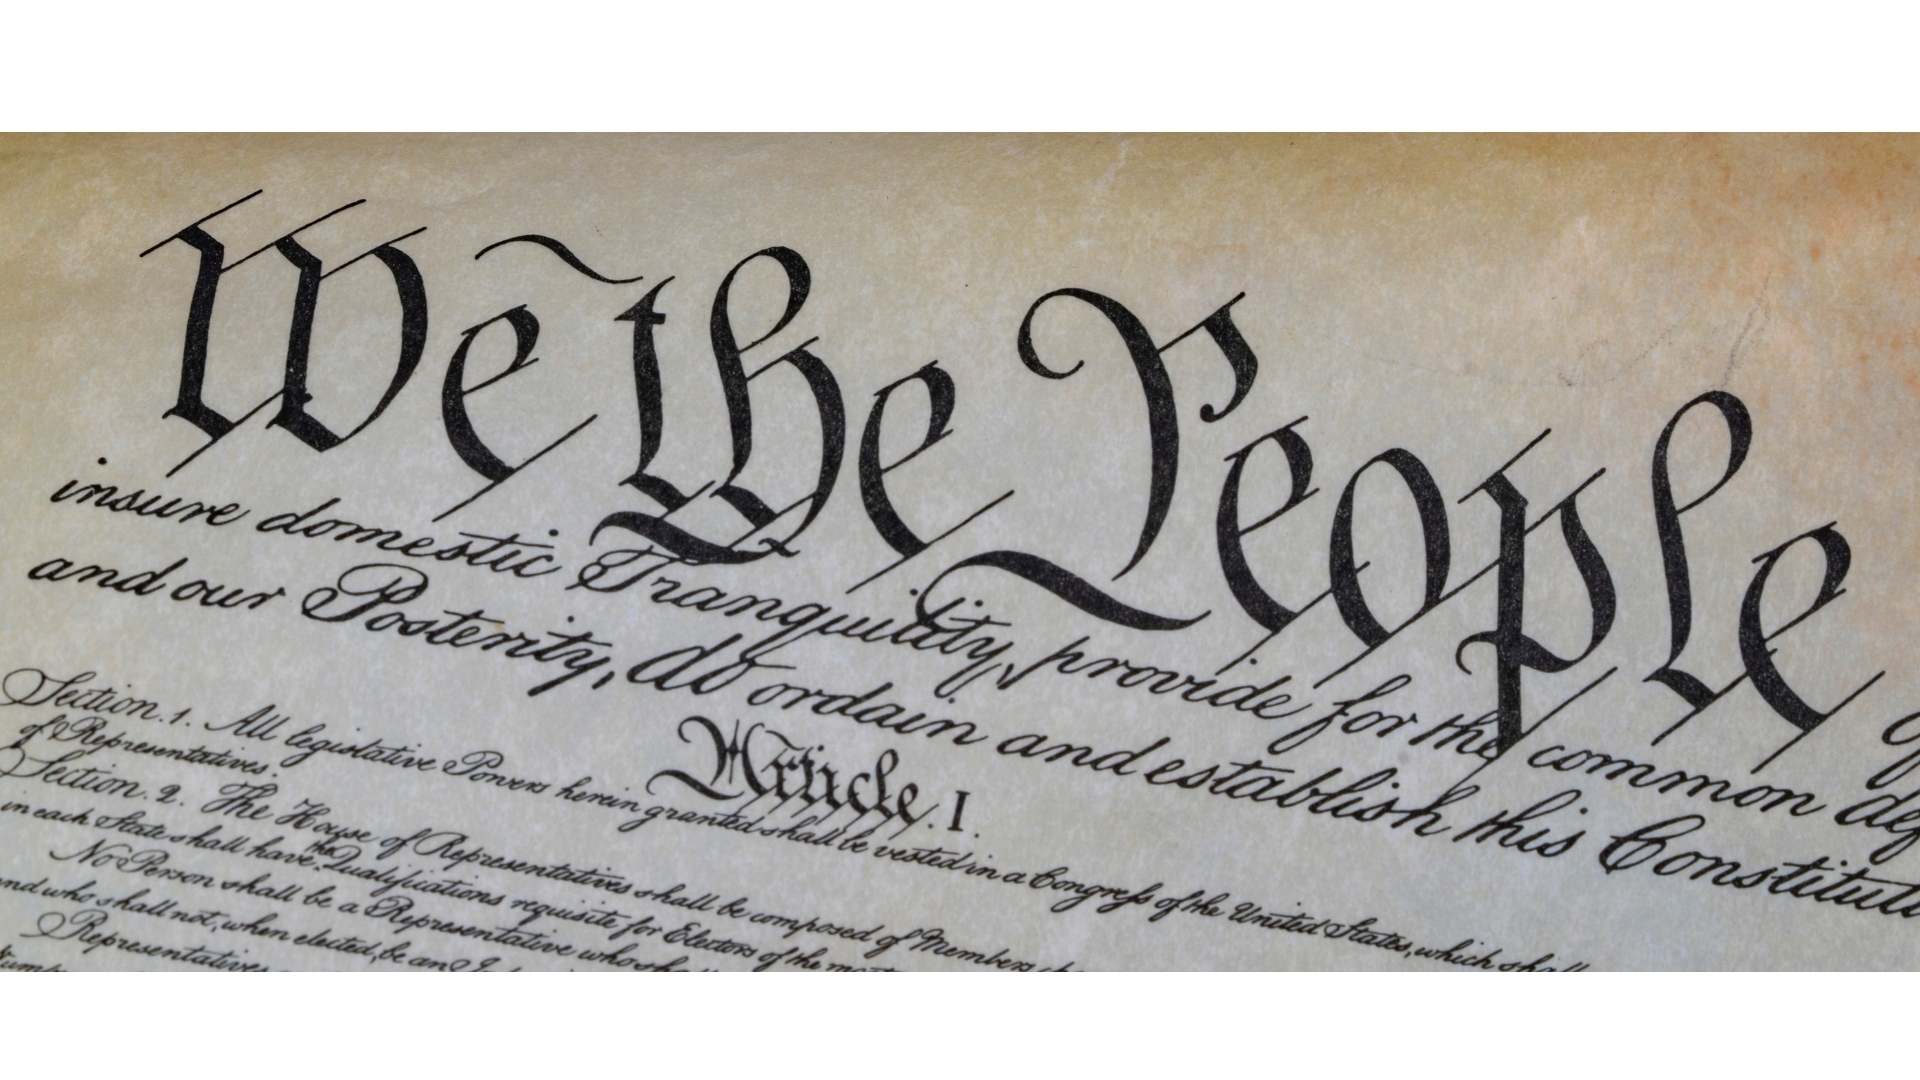 We the People
insure domestic Tranquility, provide for the common def
and our Posterity, do ordain and establish this Constituti
Article. I.
Section. 1. All legislative Powers herein granted shall be vested in a Congress of the United States, which shall
of Representatives.
Section. 2. The House of Representatives shall be composed of Members
in each State shall have the Qualifications requisite for Electors of the most
No Person shall be a Representative who sha
and who shall not, when elected, be an
Representatives